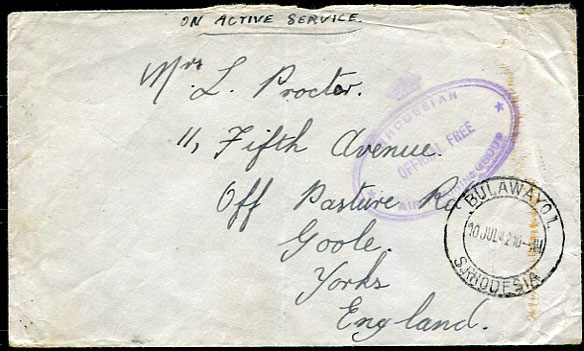 ON ACTIVE SERVICE.
Mrs L. Procter.
11, Fifth Avenue.
Off Pasture Rd
Goole.
Yorks
England.
RHODESIAN
OFFICIAL FREE
AIR TRAINING GROUP
BULAWAYO 1.
10 JUL 42 10-AM
S. RHODESIA